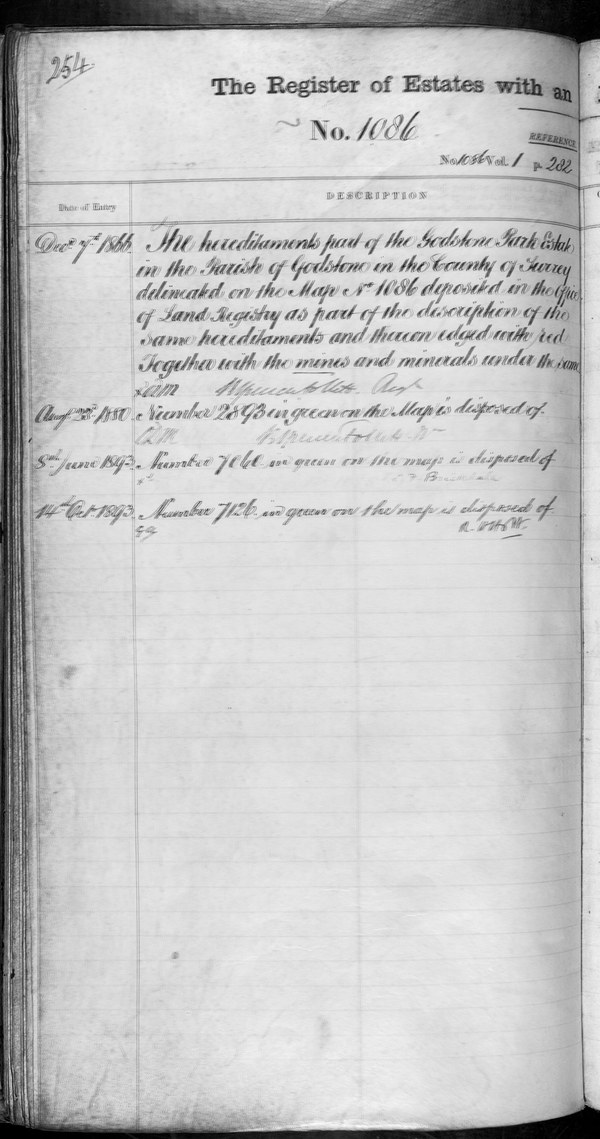 254.
The Register of Estates with an
No. 1086
REFERENCE
No. 1086 Vol. 1 p. 282
Date of Entry
DESCRIPTION
Decr 7th 1866 The hereditaments part of the Godstone Park Estate
in the Parish of Godstone in the County of Surrey
delineated on the Map No 1086 deposited in the Office
of Land Registry as part of the description of the
same hereditaments and thereon edged with red
Together with the mines and minerals under the same
1880. Number 2893 in green on the Map is disposed of.
June 1893. Number 7060 in green on the map is disposed of
14th Oct. 1893. Number 7126 in green on the map is disposed of